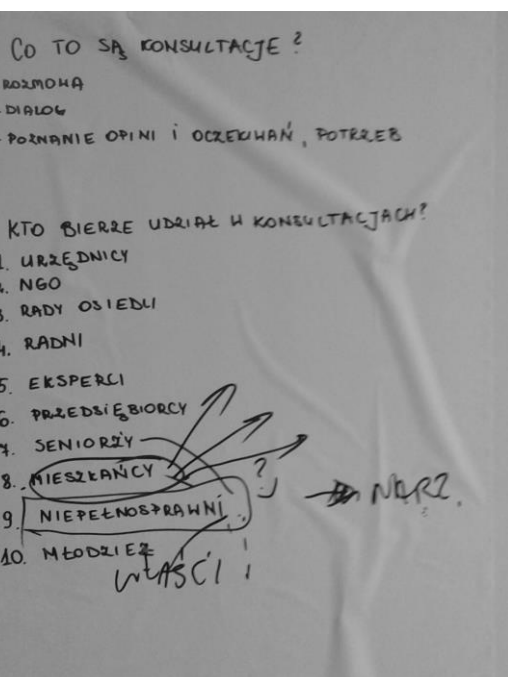 CO TO SĄ KONSULTACJE?
ROZMOWA
- DIALOG
- POZNANIE OPINI i OCZEKIWAŃ, POTRZEB
KTO BIERZE UDZIAŁ W KONSULTACJACH?
1. URZĘDNICY
2. NGO
3. RADY OSIEDLI
4. RADNI
5. EKSPERCI
6. PRZEDSIĘBIORCY
7. SENIORZY
8. MIESZKAŃCY
?
→ NARZ.
9. NIEPEŁNOSPRAWNI
10. MŁODZIEŻ
!